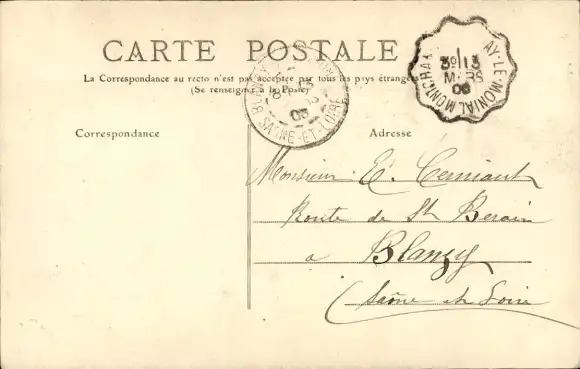 CARTE POSTALE
La Correspondance au recto n'est pas acceptée par tous les pays étrangers
(Se renseigner à la Poste)
Correspondance
Adresse
SAONE-ET-LOIRE
AY-LE-MONIAL
3º 13
MARS
06
Monsieur E.
Route de St Berain
a Blanzy
(Saône et Loire